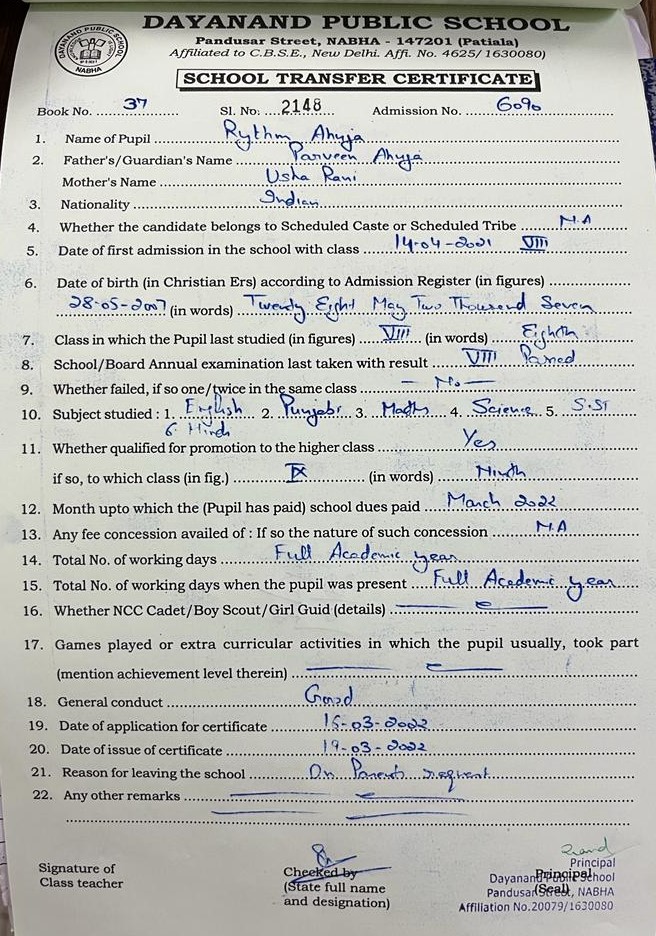 DAYANAND PUBLIC SCHOOL
DAYANAND PUBLIC SCHOOL NABHA
Pandusar Street, NABHA - 147201 (Patiala)
Affiliated to C.B.S.E., New Delhi. Affi. No. 4625/ 1630080)
SCHOOL TRANSFER CERTIFICATE
Book No. 37 Sl. No. 2148 Admission No. 6090
1. Name of Pupil Rythm Ahuja
2. Father's/Guardian's Name Parveen Ahuja
Mother's Name Usha Rani
3. Nationality Indian
4. Whether the candidate belongs to Scheduled Caste or Scheduled Tribe N.A
5. Date of first admission in the school with class 14-04-2021 VIII
6. Date of birth (in Christian Ers) according to Admission Register (in figures)
28-05-2007 (in words) Twenty Eight May Two Thousand Seven
7. Class in which the Pupil last studied (in figures) VIII (in words) Eighth
8. School/Board Annual examination last taken with result VIII Passed
9. Whether failed, if so one/twice in the same class - No -
10. Subject studied : 1. English 2. Punjabi 3. Maths 4. Science 5. S.ST
6. Hindi
11. Whether qualified for promotion to the higher class Yes
if so, to which class (in fig.) IX (in words) Ninth
12. Month upto which the (Pupil has paid) school dues paid March 2022
13. Any fee concession availed of : If so the nature of such concession N.A
14. Total No. of working days Full Academic year
15. Total No. of working days when the pupil was present Full Academic year
16. Whether NCC Cadet/Boy Scout/Girl Guid (details)
17. Games played or extra curricular activities in which the pupil usually, took part
(mention achievement level therein)
18. General conduct Good
19. Date of application for certificate 15-03-2022
20. Date of issue of certificate 19-03-2022
21. Reason for leaving the school On Parents request
22. Any other remarks
Signature of
Class teacher
Checked by
(State full name
and designation)
Principal
(Seal)
Principal
Dayanand Public School
Pandusar Street, NABHA
Affiliation No.20079/1630080